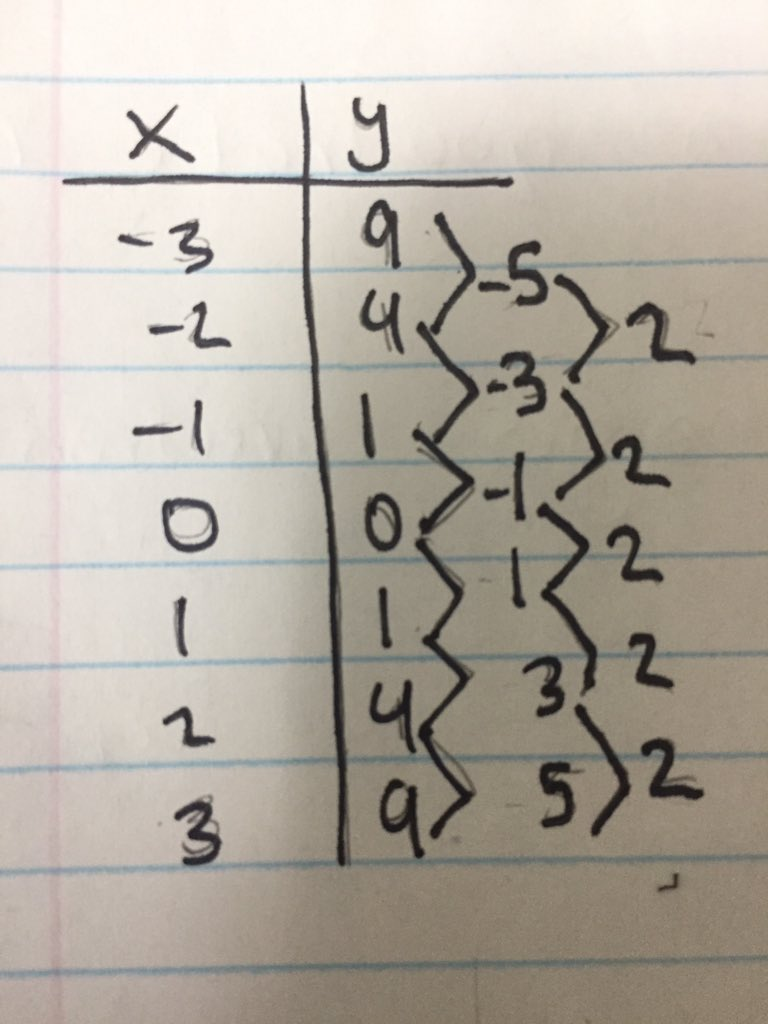 x y
-3 9
-5
-2 4 2
-3
-1 1 2
-1
0 0 2
1
1 1 2
3
2 4 2
5
3 9